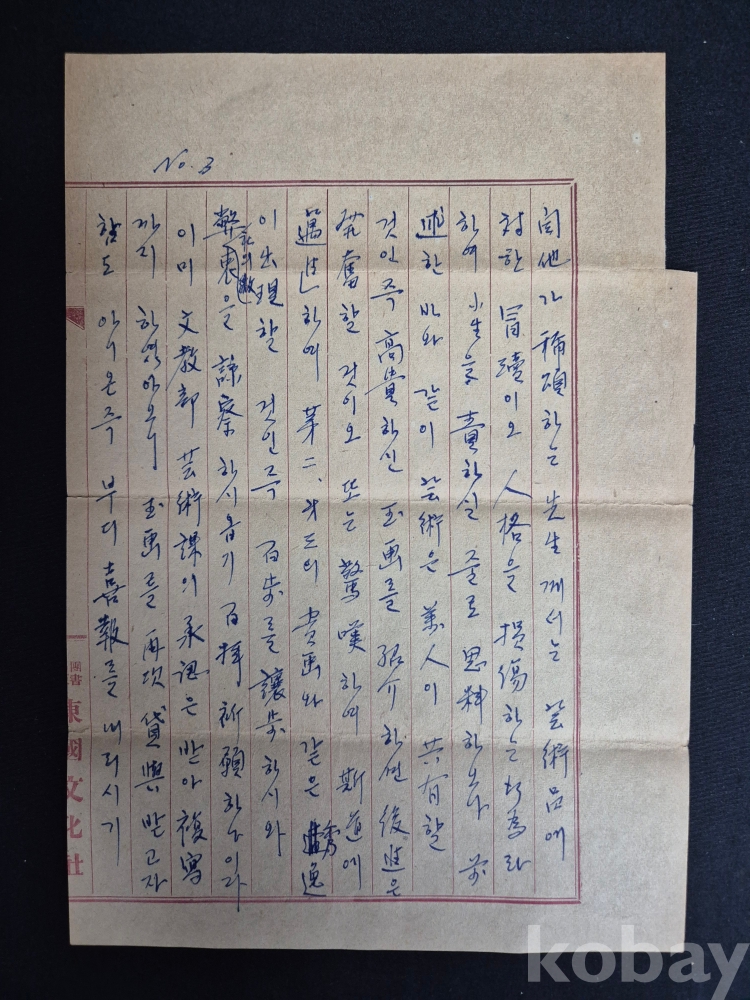 No. 3
自他가 稱頌하는 先生께서는 芸術品에
対한 冒瀆이오 人格을 損傷하는 行為라
하여 小生을 責하실 줄로 思料하오나 前
述한 바와 같이 芸術은 萬人이 共有할
것인 즉 高貴하신 玉画를 紹介하면 後進은
奮할 것이오 또는 驚嘆하여 斯道에
邁進하여 第二、第三의 貴画와 같은 秀逸
이 出現할 것인 즉 百步를 讓步하시와
弊社의 衷을 諒察하시옵기 百拜 祈願하나이다
이미 文教部 芸術課의 承認은 받아 複写
까지 하였아오니 玉画를 再次 貸與받고자
함도 아니온 즉 부디 喜報를 내리시기
圖書 東國文化社
kobay